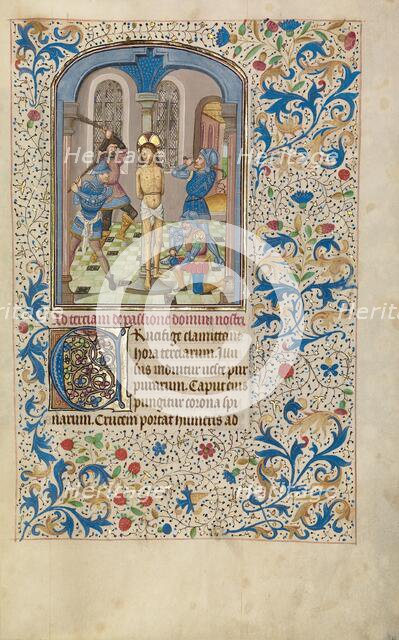 Ad terciam de passione domini nostri
Crucifige clamitant
hora terciarum. Illu
sus induitur ueste pur
purarum. Caput eius
pungitur corona spi
narum. Crucem portat humeris ad
Heritage Heritage Heritage
images images images